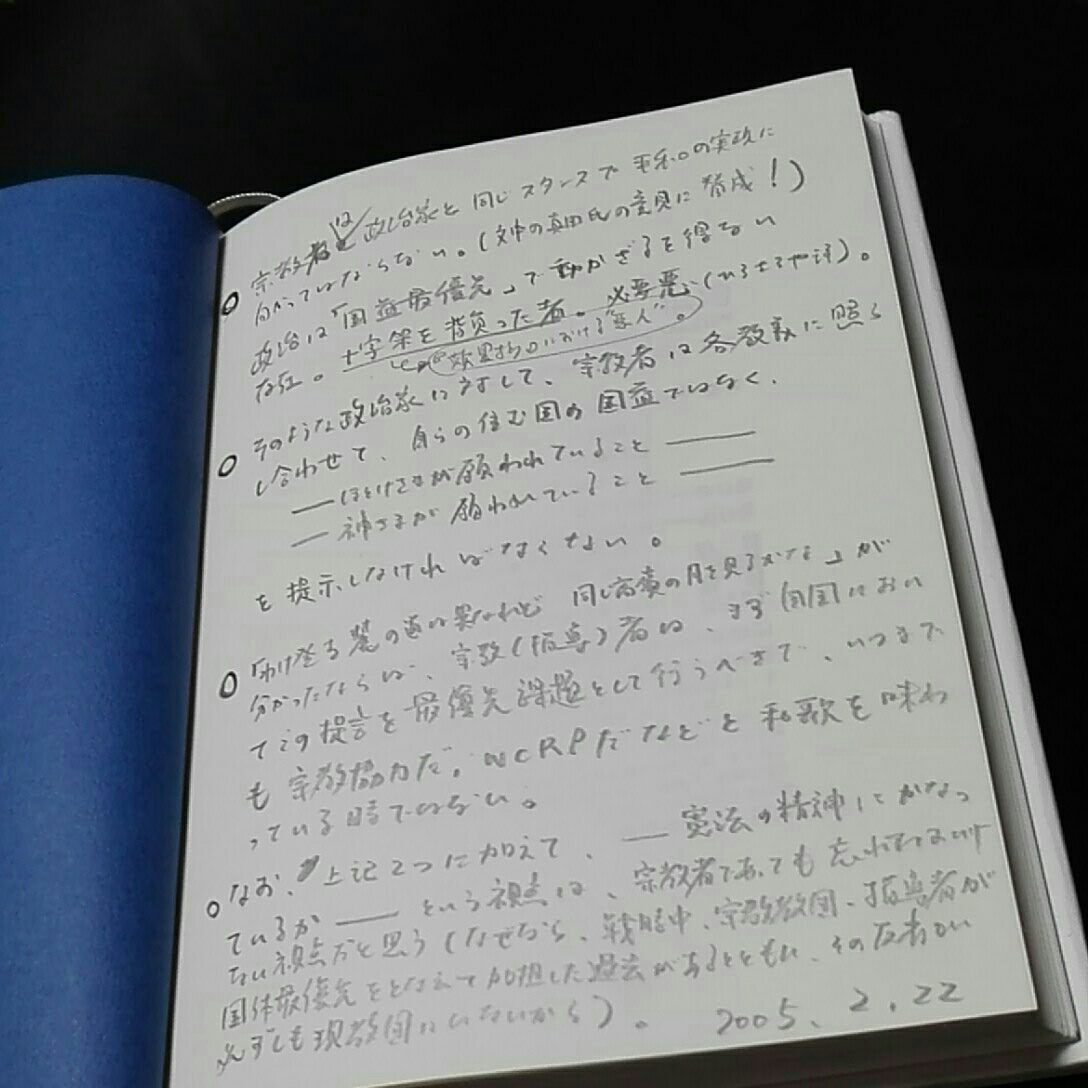 ○ 宗教者は政治家と同じスタンスで平和の実現に
向かってはならない。(文中の真田氏の意見に賛成!)
政治は「国益最優先」で動かざるを得ない
存在。十字架を背負った者。必要悪(ひろさちや詩)。
における“悪人”。
○ そのような政治家に対して、宗教者は各教義に照ら
し合わせて、自らの住む国の国益ではなく、
― ほとけさまが願われていること ―
― 神さまが願われていること ―
を提示しなければなくない。
○ 「わけ登る麓の道は異なれど 同じ高嶺の月を見るかな」が
分かったならば、宗教(指導)者は、まず自国におい
てこの提言を最優先課題として行うべきで、いつまで
も宗教協力だ。WCRPだなどと和歌を味わ
っている時ではない。
○ なお、上記2つに加えて、― 憲法の精神にかなっ
ているか ― という視点は、宗教者であても忘れてはいけ
ない視点だと思う(なぜなら、戦時中、宗教教団、指導者が
国体最優先をとなえて加担した過去があるとともに、その反省が
必ずしも現教団にいないから)。 2005. 2. 22